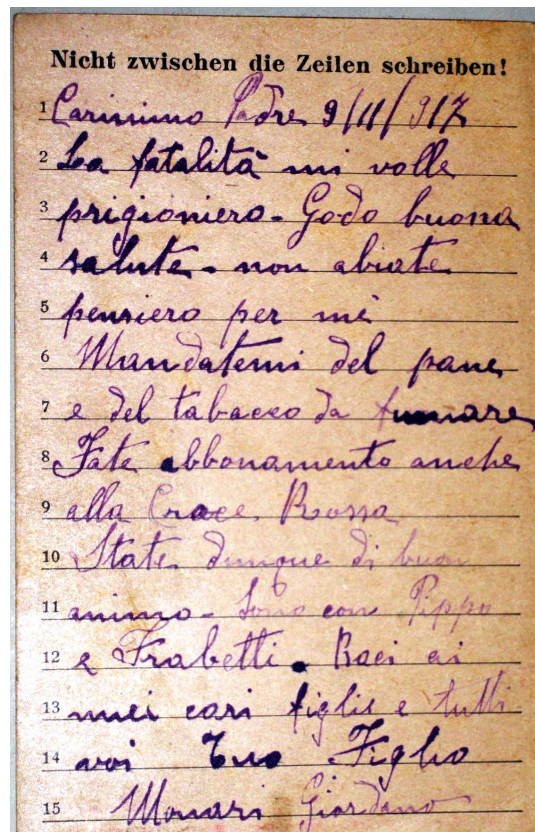 Nicht zwischen die Zeilen schreiben!
1 Carissimo Padre 9/11/917
2 La fatalità mi volle
3 prigioniero - Godo buona
4 salute - non abiate
5 pensiero per mè
6 Mandatemi del pane
7 e del tabacco da fumare
8 Fate abbonamento anche
9 alla Croce Rossa
10 State dunque di buon
11 animo - Sono con Pippo
12 e Frabetti. Baci ai
13 miei cari figlie e tutti
14 voi Tuo Figlio
15 Monari Giordano